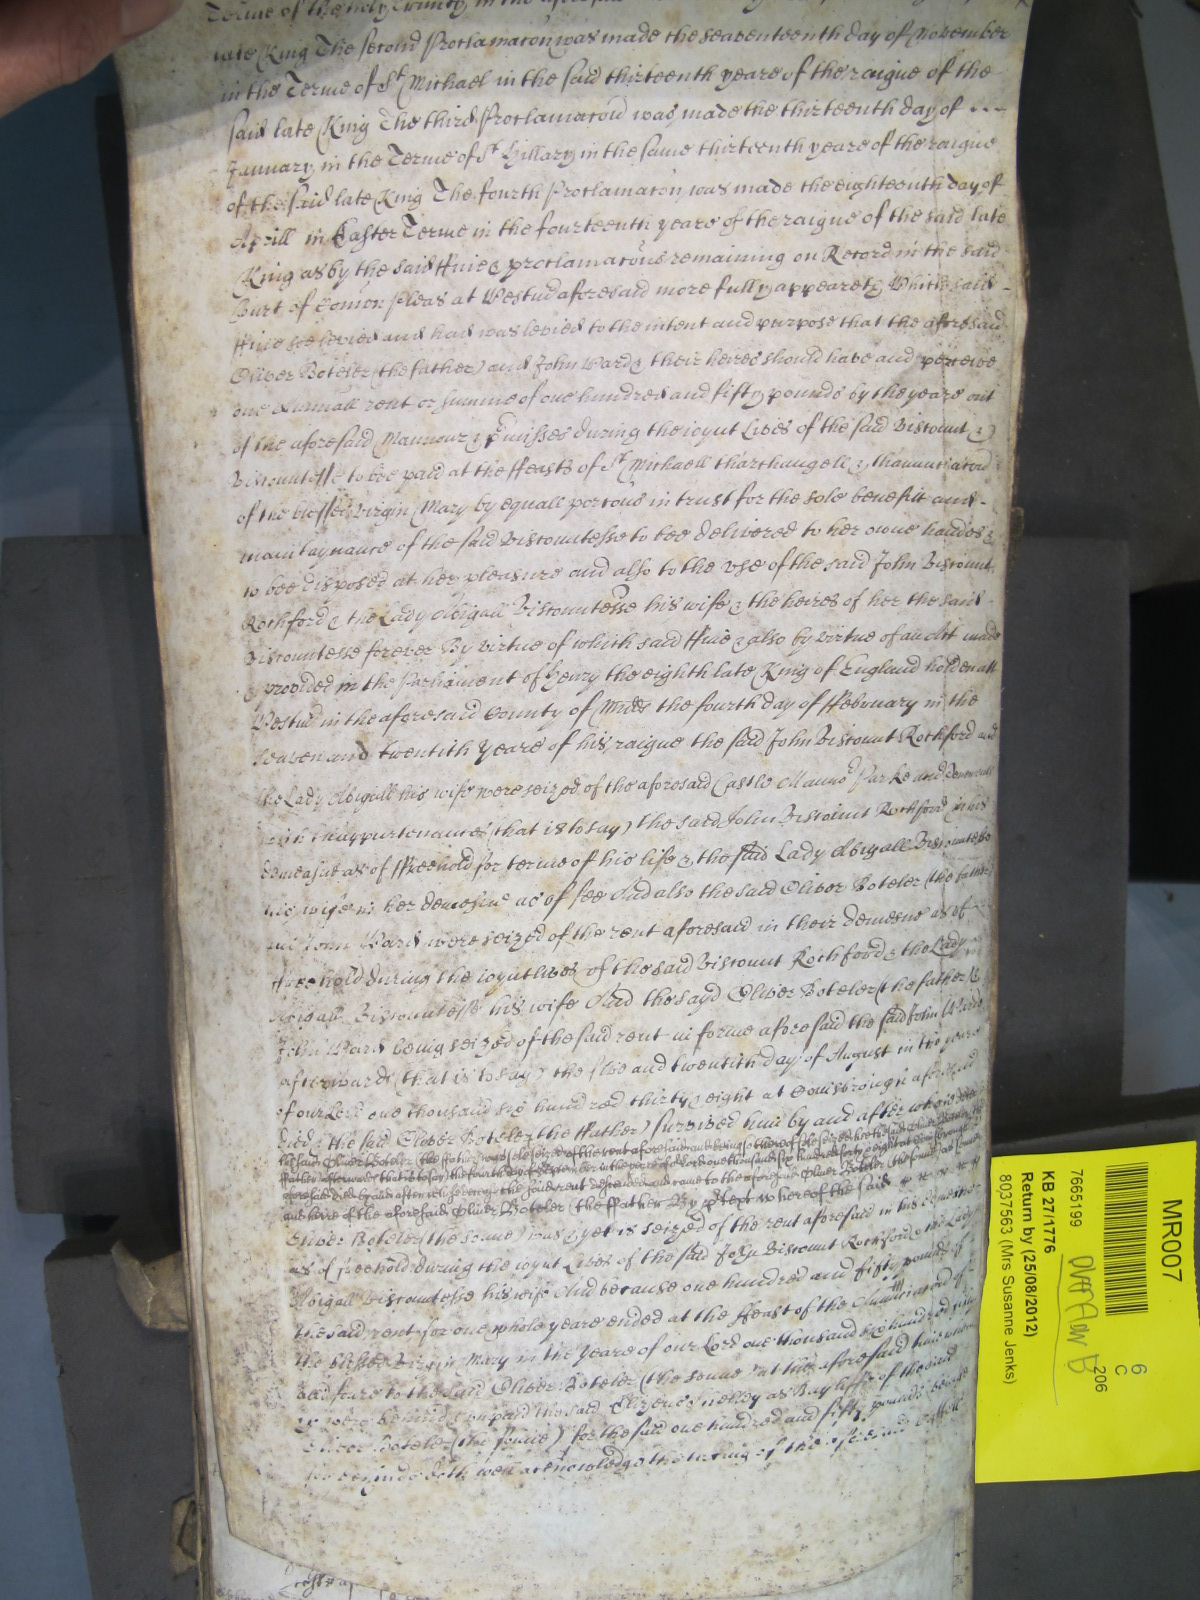 Terme of the holy Trinity in the aforesaid
late King The second Proclamacon was made the seaventeenth day of November
in the Terme of St Michael in the said thirteenth yeare of the raigne of the
said late King The third Proclamacon was made the thirteenth day of ---
January in the Terme of St Hillary in the same thirteenth yeare of the raigne
of the said late King The fourth Proclamacon was made the eighteenth day of
Aprill in Easter Terme in the fourteenth yeare of the raigne of the said late
King as by the said ffine & proclamacons remaining on Record in the said
Court of Comon Pleas at Westm aforesaid more fully appeareth Which said
ffine soe levied and had was levied to the intent and purpose that the aforesaid
Oliver Boteler (the father) and John Ward & their heires should have and perceive
one Annuall rent or summe of one hundred and fifty pounds by the yeare out
of the aforesaid Mannour & pmisses during the ioynt Lives of the said Viscount &
Viscountesse to bee paid at the ffeasts of St Michaell tharchangell & thannunciacon
of the blessed Virgin Mary by equall porcons in trust for the sole benefitt and
maintaynance of the said Viscountesse to bee delivered to her owne handes &
to bee disposed at her pleasure and also to the vse of the said John Viscount
Rochford & the Lady Abigall Viscountesse his wife & the heires of her the said
Viscountesse forever By virtue of which said ffine & also by virtue of an Act made
& provided in the Parliament of Henry the eighth late King of England holden att
Westm in the aforesaid County of Midds the fourth day of ffebruary in the
seaven and twentith yeare of his raigne the said John Viscount Rochford and
the Lady Abigall his wife were seized of the aforesaid Castle Mannor Parke and
with thappurtenances (that is to say) the said John Viscount Rochford in his
demeasne as of ffreehold for terme of his life & the said Lady Abigall Viscountesse
his wife in her demesne as of fee And also the said Oliver Boteler (the father)
and John Ward were seized of the rent aforesaid in their demesne as of
ffreehold during the ioynt lives of the said Viscount Rochford & the Lady
Abigall Viscountesse his wife And the sayd Oliver Boteler (the father) &
John Ward being seized of the said rent in forme aforesaid the said John Ward
afterwards (that is to say) the five and twentith day of August in the yeare
of our Lord one thousand six hundred thirty & eight at Conisbrough aforesaid
died & the said Oliver Boteler (the ffather) survived him by and after whose decease
the said Oliver Boteler (the father) was sole seized of the rent aforesaid and being so thereof sole seized hee the said Oliver Boteler the
ffather afterwards that is to say the fourth day of September in the yeare of our Lord one thousand six hundred forty & eight at Conisbrough
aforesaid died by and after whose decease the said rent descended and came to the aforesaid Oliver Boteler (the sonne) as sonne
and heire of the aforesaid Oliver Boteler (the ffather By ptext whereof the said
Oliver Boteler (the sonne) was & yet is seized of the rent aforesaid in his demesne
as of freehold during the ioynt Lives of the said John Viscount Rochford & the Lady
Abigall Viscountesse his wife And because one hundred and fifty pounds of
the said rent for one whole yeare ended at the ffeast of the Annunciacon of
the blessed Virgin Mary in the yeare of our Lord one thousand six hundred fifty
and foure to the said Oliver Boteler (the sonne) at the aforesaid time when
&c were behind & unpaid the said Elizeus Netley as Bayliffe of the said
Oliver Boteler (the sonne) for the said one hundred and fifty pounds
soe behinde doth well acknowledge the taking of the aforesaid Cattell
MR007
7665199
6
C
206
KB 27/1776
Return by (25/08/2012)
8037563 (Mrs Susanne Jenks)